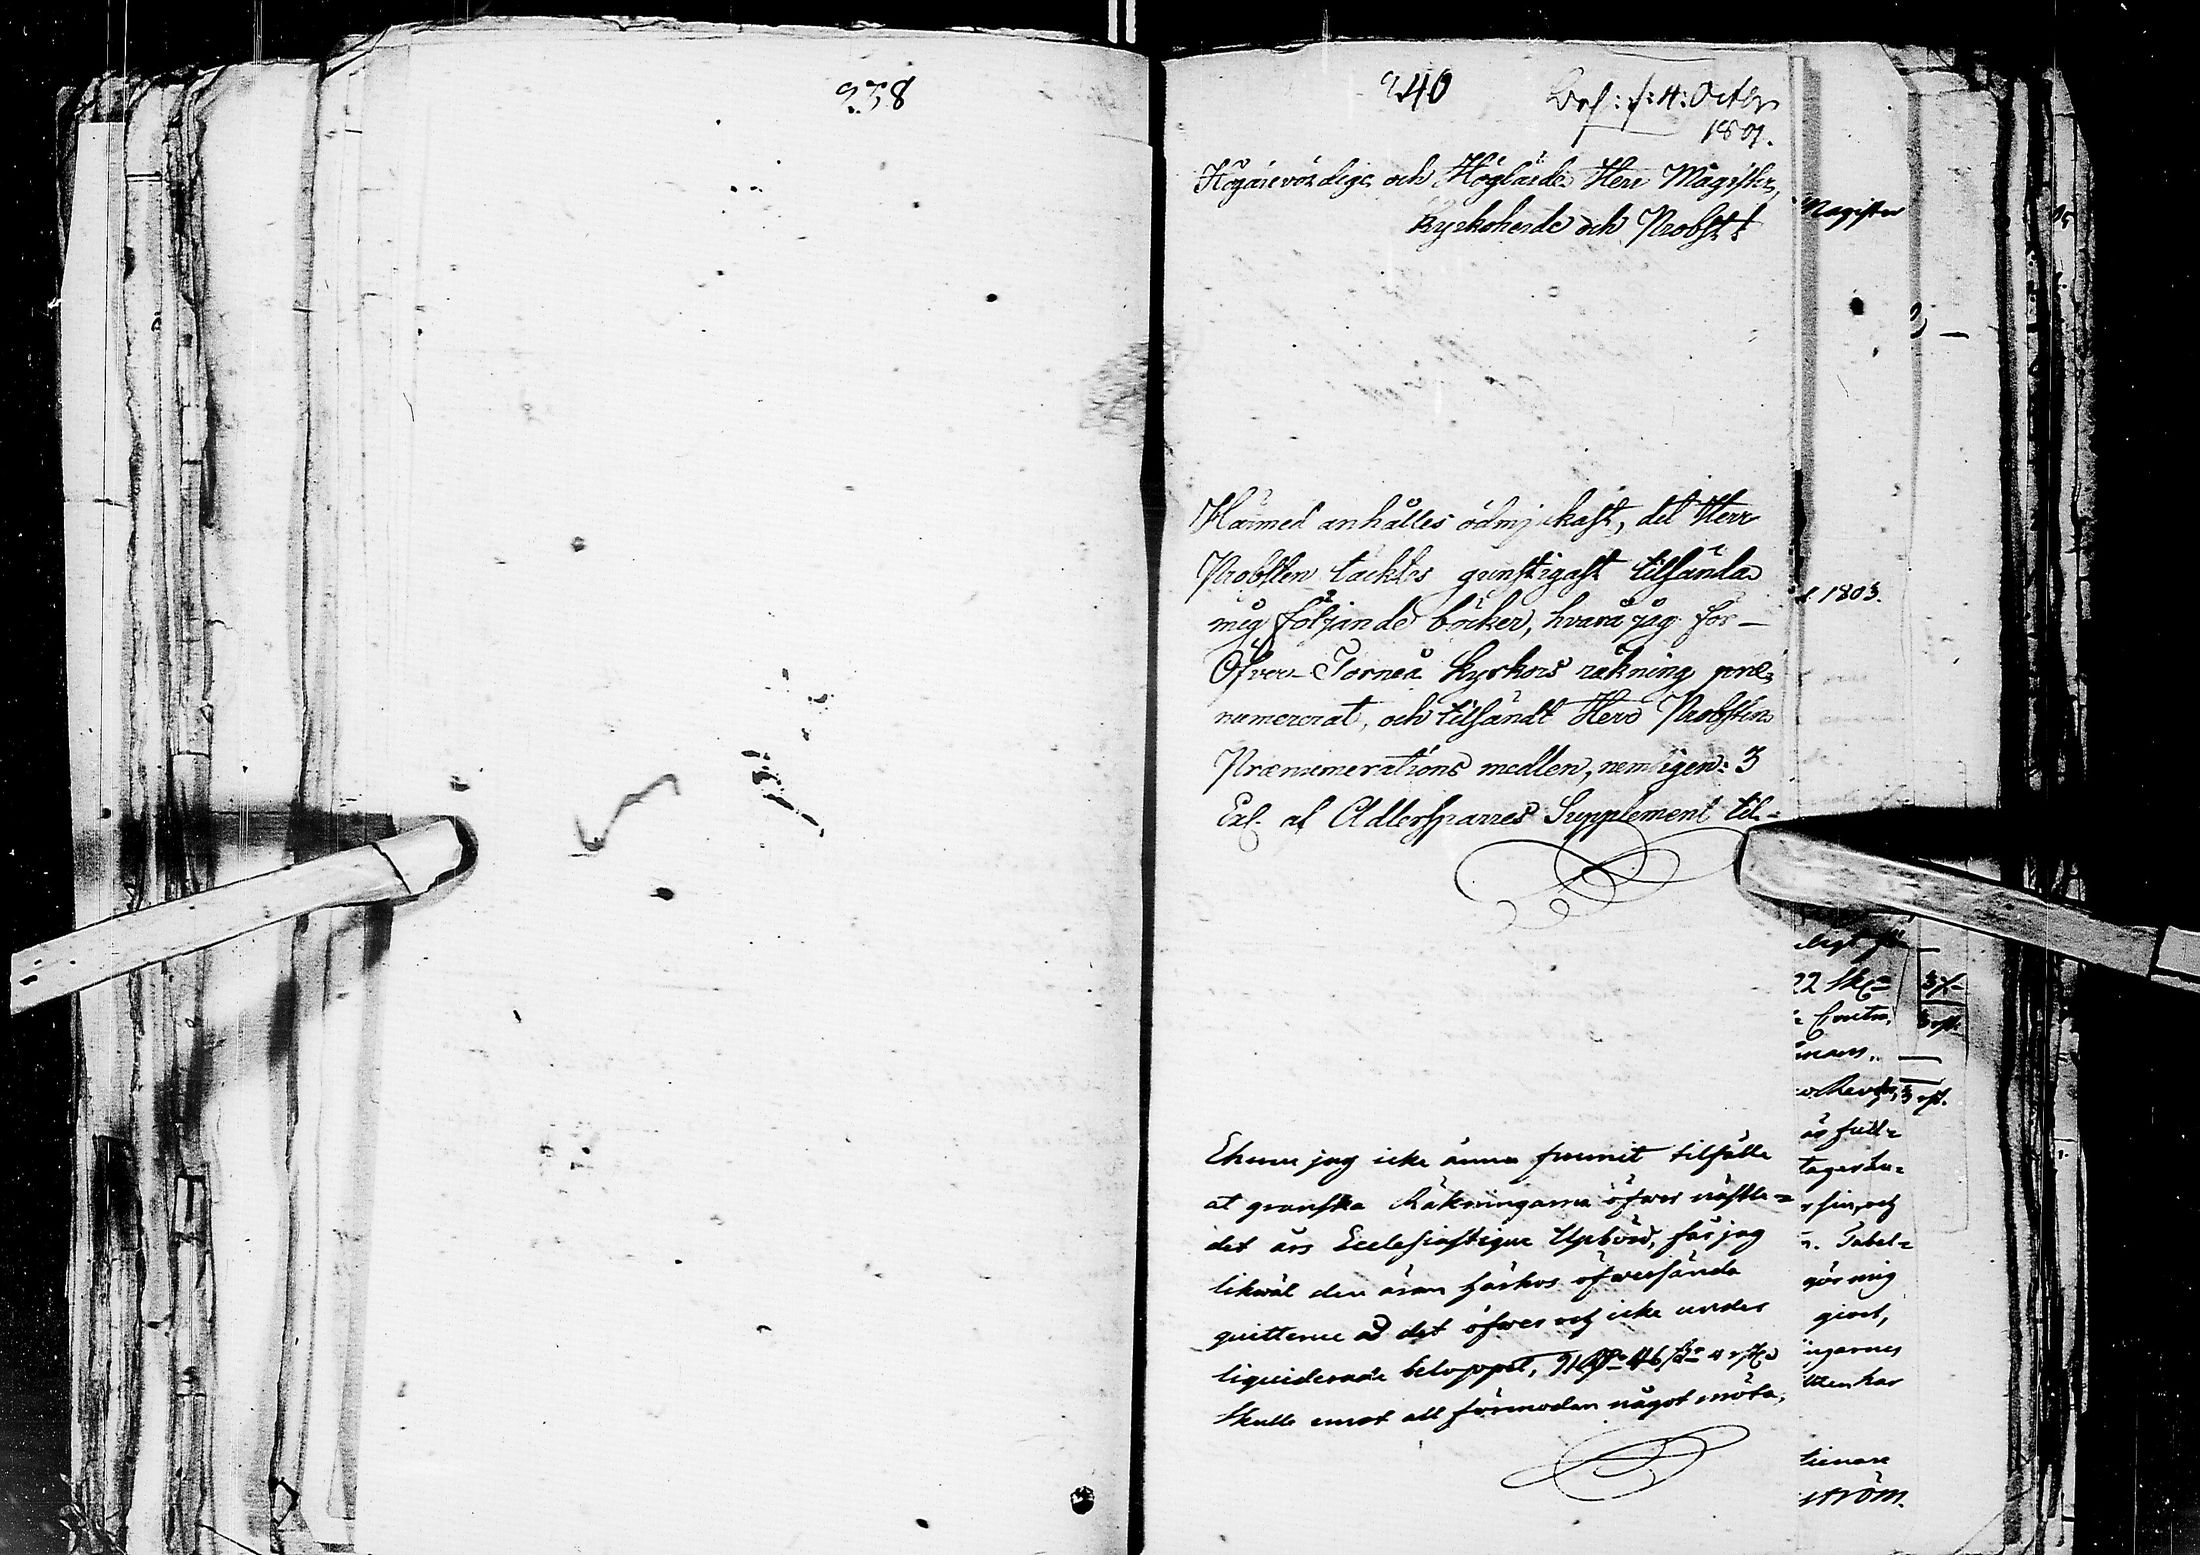 238
240
Bes: d: 4: Octbr
1801.
Högärevördige och Höglärde Herr Magister,
Kyrkoherde och Probst!
Härmed anhålles ödmjukast, det Herr
Probsten täcktes gunstigast tilsända
mig följande böcker, hvarå jag för
Öfver-Torneå kyrkors räkning præ-
numererat, och tilsändt Herr Probsten
Prænumerations medlen, nemligen: 3
Exl. af Adlersparres Supplement til-
Ehuru jag icke ännu funnit tilfälle
at granska Räkningarna öfwer nästle-
det års Ecclesiastique Upbörd, får jag
likwäl den äran härhos öfwersända
quittence å det öfwer och icke under
liquiderade beloppet, 46
Skulle emot all förmodan något möta,
Magister
1803.
22 sk
3
o. Revers, 3
är full-
tager
r sin, och
n. Tabel-
gör mig
giord,
ingarnes
tienare
ström.